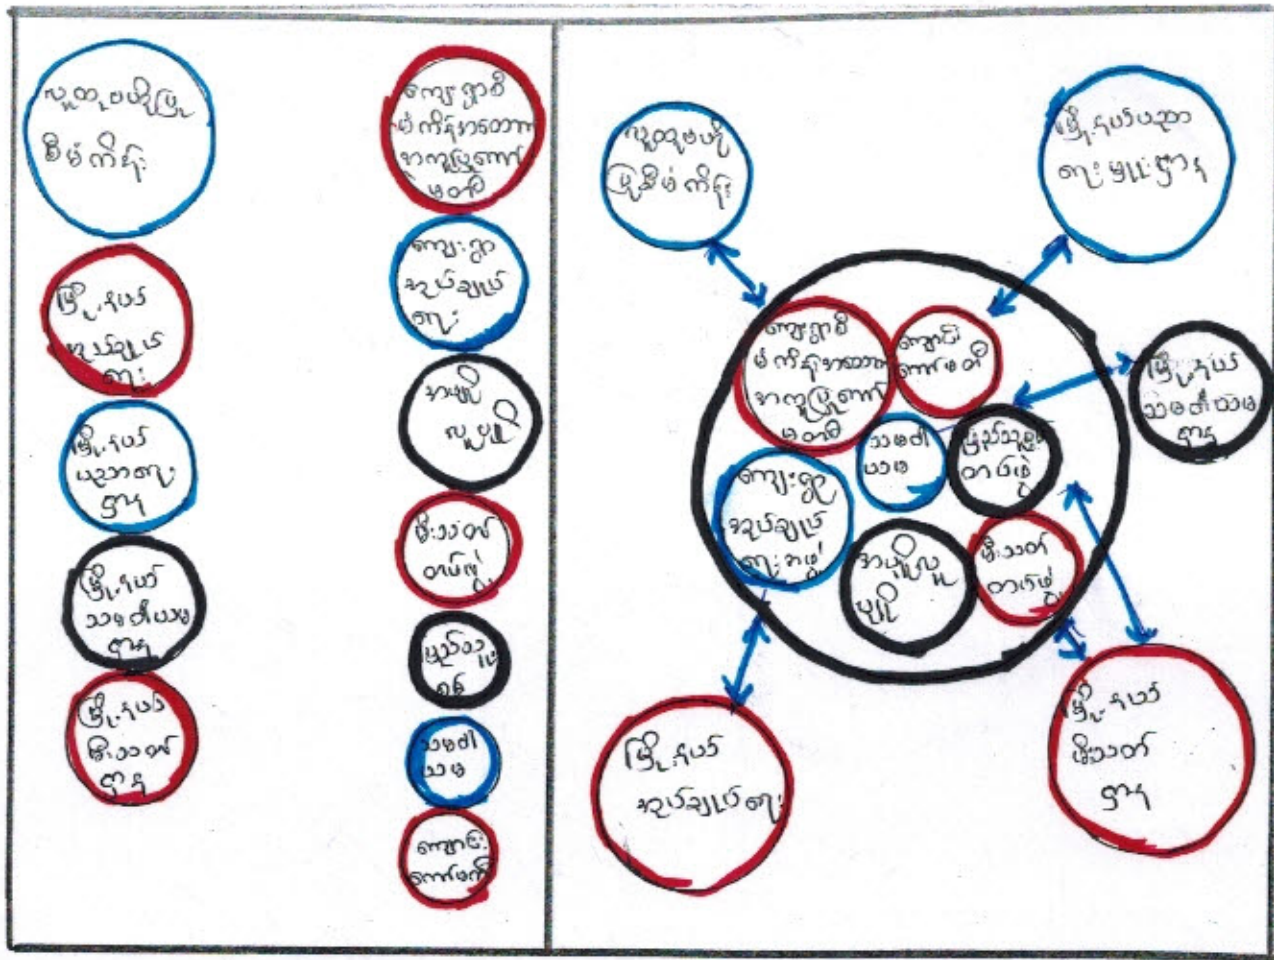 လူထုဗဟိုပြု
စီမံကိန်း
မြို့နယ်
အုပ်ချုပ်
ရေး
မြို့နယ်
ပညာရေး
ဌာန
မြို့နယ်
သမဝါယမ
ဌာန
မြို့နယ်
မီးသတ်
ဌာန
ကျေးရွာစီ
မံကိန်းအထောက်
အကူပြုကော်
မတီ
ကျေးရွာ
အုပ်ချုပ်
ရေး
မီးသတ်
တပ်ဖွဲ့
သမဝါ
ယမ
ကျောင်း
ကော်မတီ
လူထုဗဟို
ပြုစီမံကိန်း
မြို့နယ်ပညာ
ရေးမှူးဌာန
ကျေးရွာစီ
မံကိန်းအထောက်
အကူပြုကော်
မတီ
ကျောင်း
ကော်မတီ
မြို့နယ်
သမဝါယမ
ဌာန
သမဝါ
ယမ
တပ်ဖွဲ့
ကျေးရွာ
အုပ်ချုပ်
ရေးအဖွဲ့
မီးသတ်
တပ်ဖွဲ့
မြို့နယ်
အုပ်ချုပ်ရေး
မြို့နယ်
မီးသတ်
ဌာန